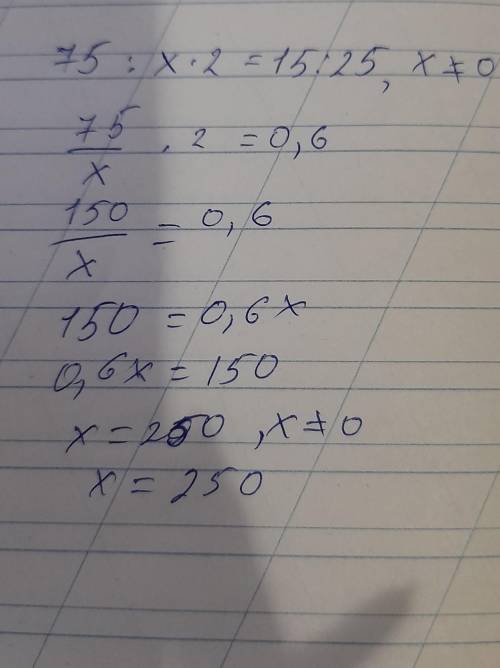 75 : x · 2 = 15 : 25, x ≠ 0
75/x · 2 = 0,6
150/x = 0,6
150 = 0,6x
0,6x = 150
x = 250, x ≠ 0
x = 250